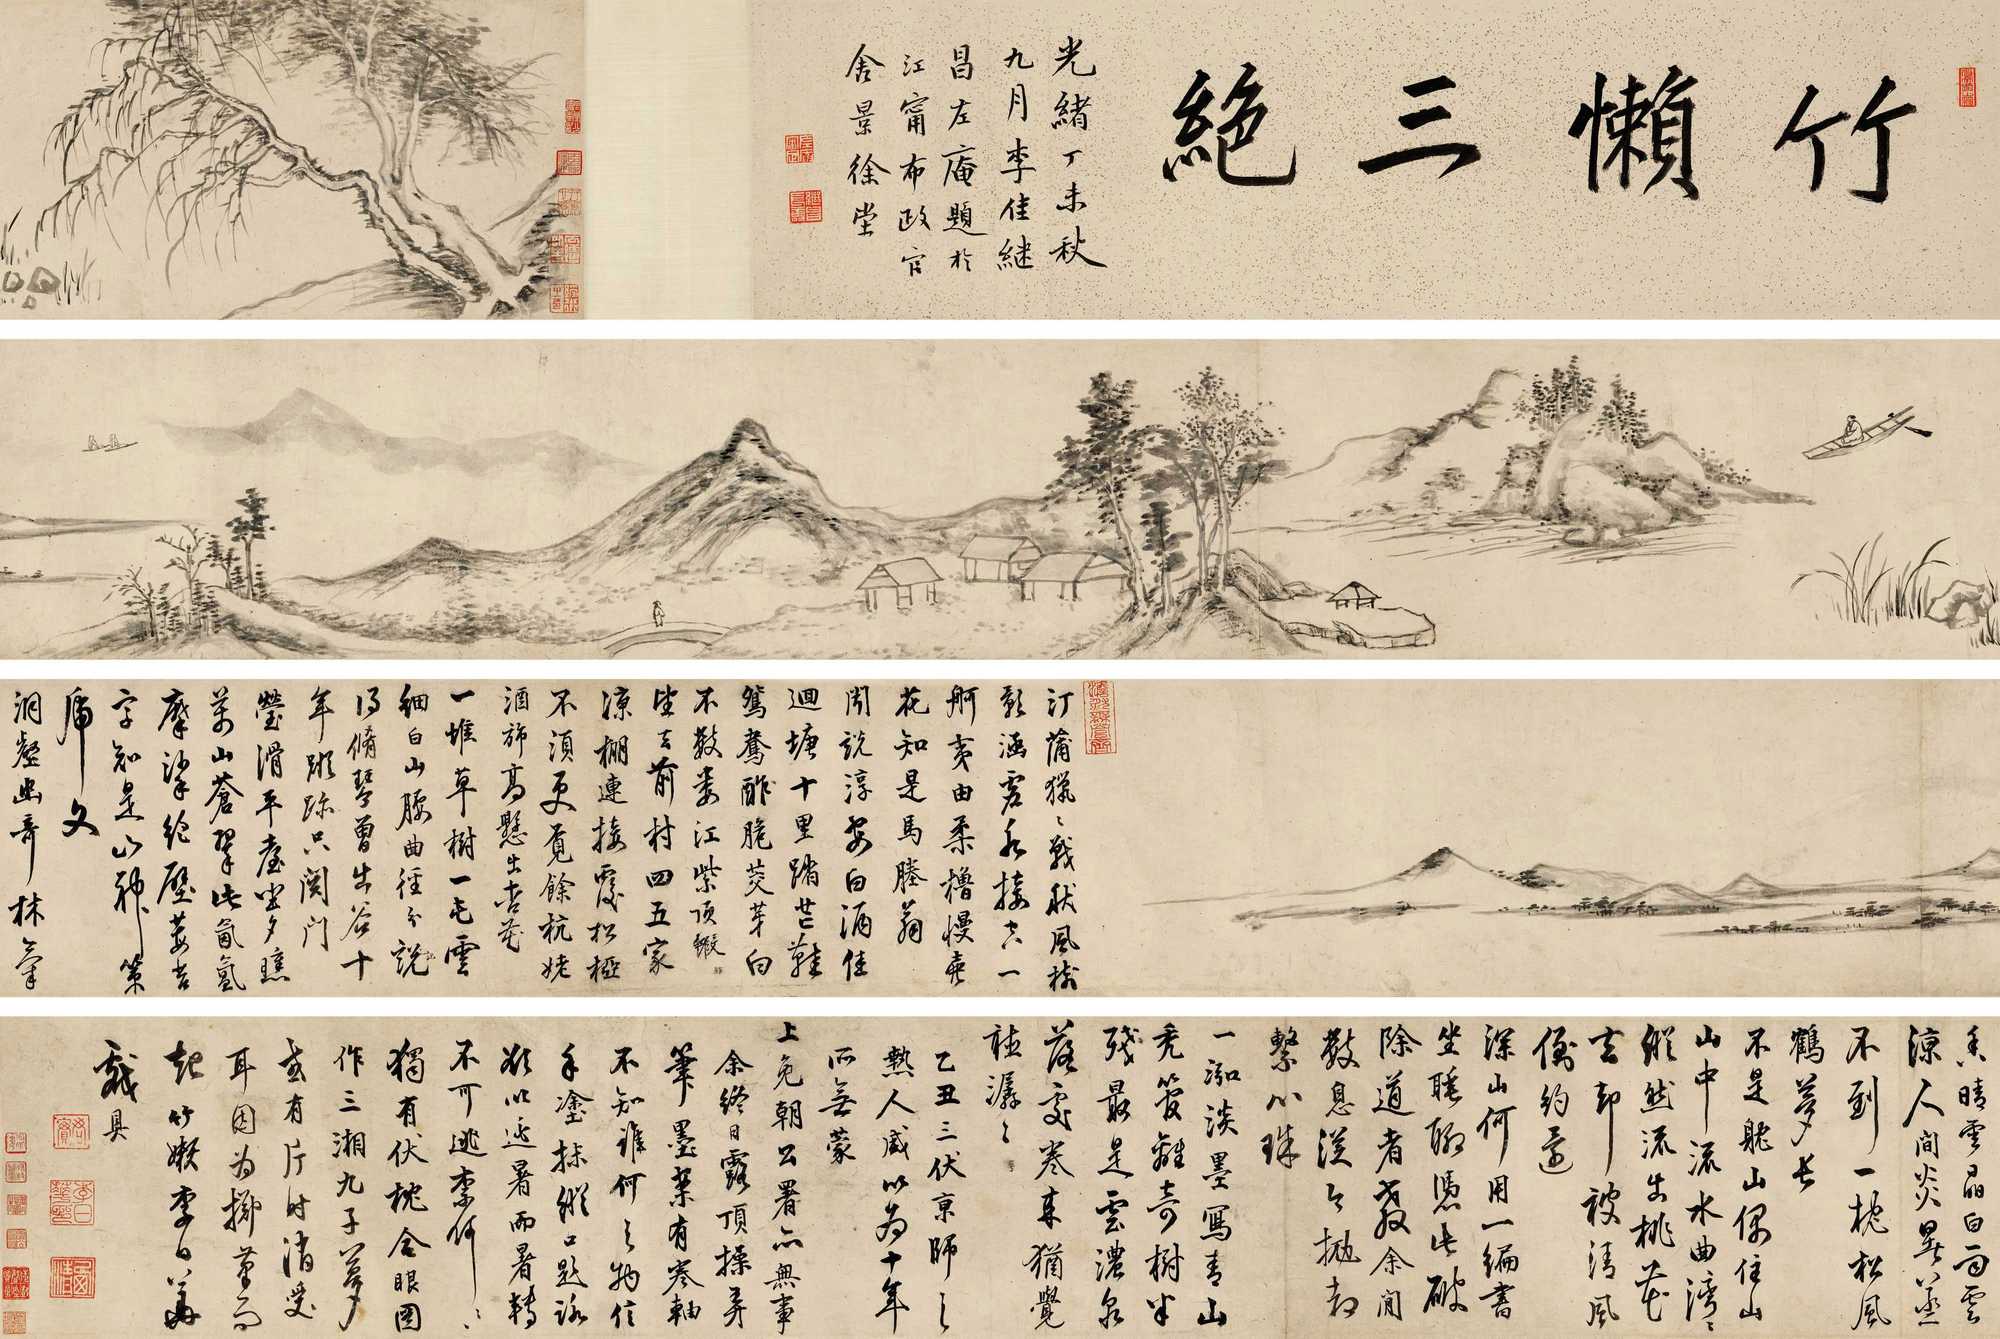 竹懶三絕
光緒丁未秋
九月李佳継
昌左庵題於
江甯布政官
舍景徐堂
汀蒲獵〻戰秋風樹
影涵君水接空一
舸夷由柔櫓慢
花知是馬塍翁
聞說淳安白酒佳
迴塘十里踏芒鞋
鴛鴦酢脆茭芽白
不數婁江紫頂
坐之前村四五家
涼棚連接覆松椏
不須更覓餘杭姥
酒斾高懸出杏花
一堆草樹一毛雲
細白山腰曲徑分說
脩琴曾出谷十
年蹤跡只關門
瑩滑平臺坐夕曛
萬山蒼翠此氤氳
摩挲絕壁莓苔
字知是山神策
虎文
洞壑幽奇林
晴雲晶白雨雲
涼人間炎暑蒸
不到一枕松風
鶴夢長
不是躭山偶住山
山中流水曲灣〻
縱然流出桃花
去却被清風
約還
深山何用一編書
坐睡聊憑此破
除道者教余閒
數息從今拋却
繫心珠
一泓淡墨寫青山
禿筆離奇樹半
殘最是雲濃泉
落處卷來猶覺
聽潺〻
乙丑三伏京師之
熱人咸以為十年
所無蒙
上免朝公署亦無事
余終日露頂操弄
筆墨案有卷軸
不知誰何之物信
手塗抹縱口題詠
欲以逃暑而暑轉
不可逃奈何〻
獨有伏枕合眼圖
作三湘九子夢
或有片時消受
耳因為擲筆而
起竹嬾李日華
戲具